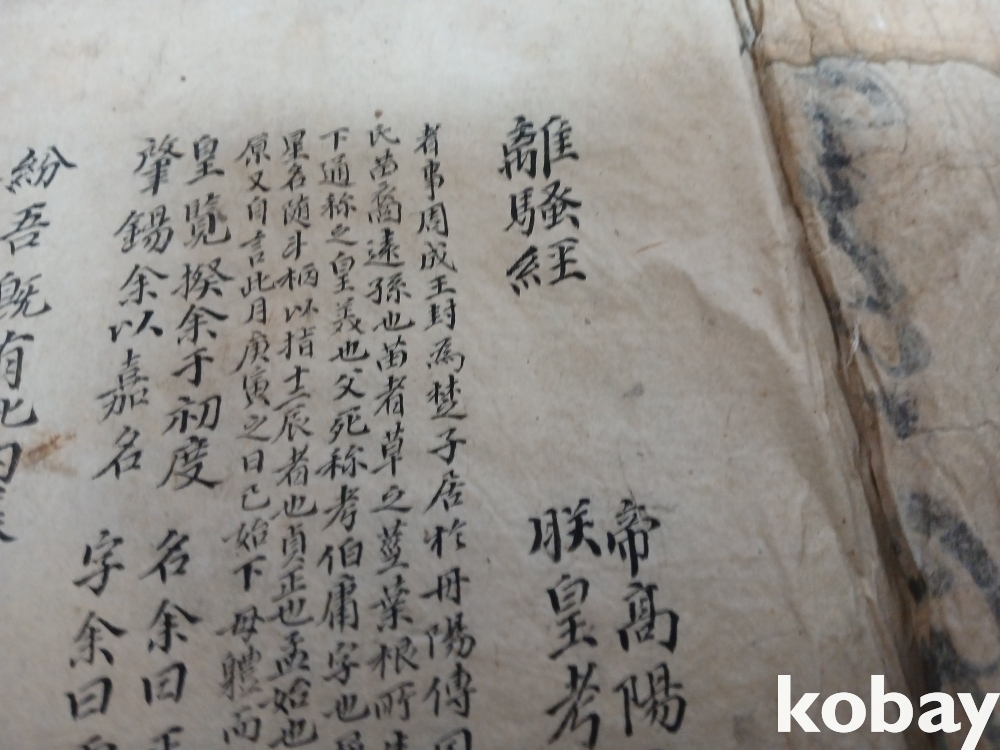 離騷經
帝高陽
朕皇考
者事周成王封為楚子居於丹陽傳
氏苗裔遠孫也苗者草之莖葉根所
下通称之皇美也父死称考伯庸字也
星名随斗柄以指十二辰者也貞正也孟始也
原又自言此月庚寅之日已始下母軆而
皇覽揆余于初度 名余曰正
肇錫余以嘉名 字余曰
紛吾既有此內
kobay